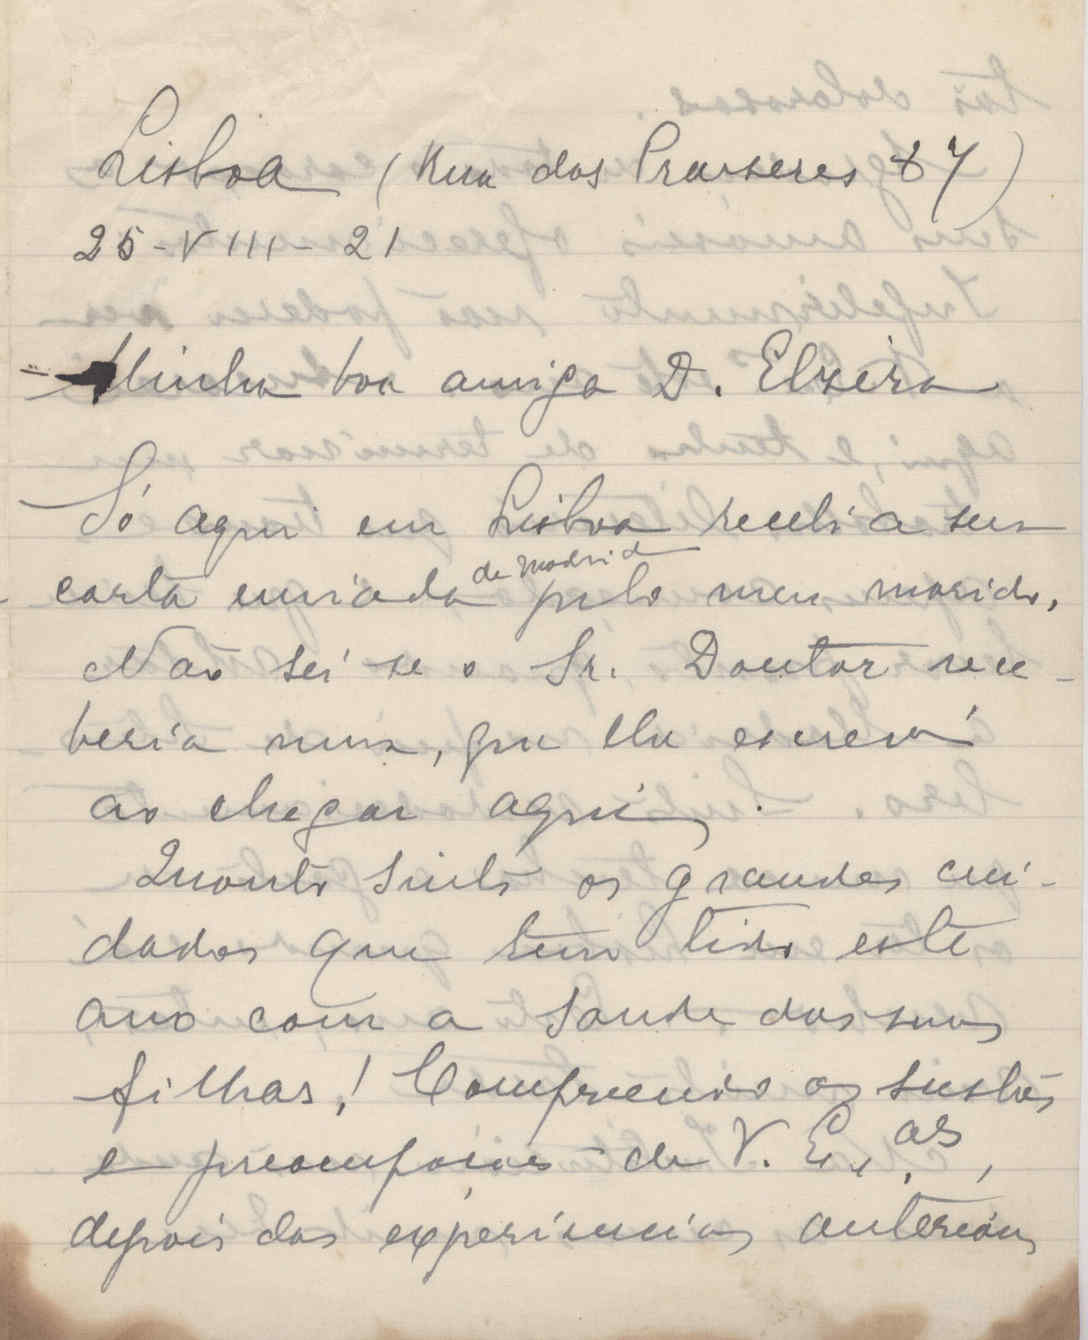 Lisboa (Rua dos Prazeres 87)
25-VIII-21
Minha boa amiga D. Elzira
Só aqui em Lisboa recebi a sua
carta enviada de Madrid pelo meu marido.
Não sei se o Sr. Doutor rece-
beria uma, que lhe escrevi
ao chegar aqui.
Quanto sinto os grandes cui-
dados que tem tido este
ano com a saude das suas
filhas! Compreendo os sustos
e preocupações de V. Ex.as,
depois das experiencias anteriores